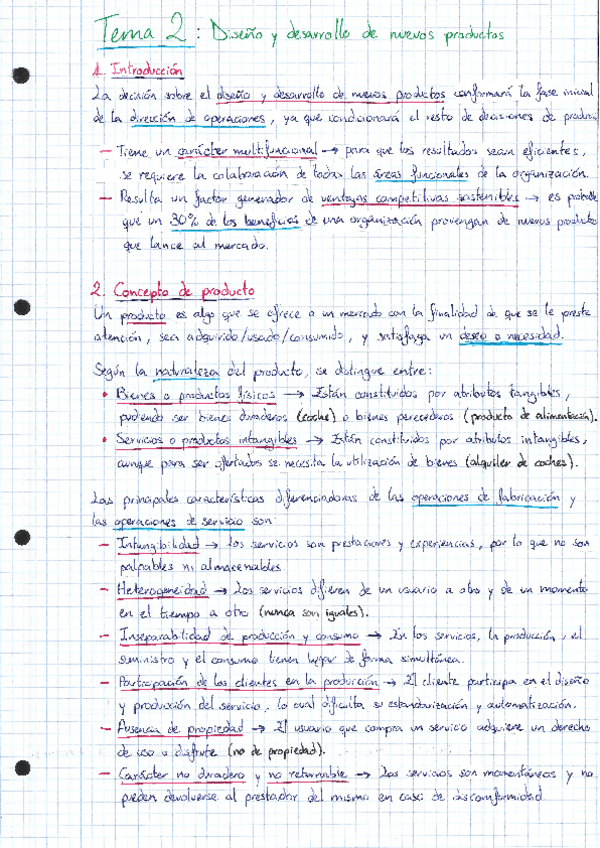 Tema 2: Diseño y desarrollo de nuevos productos
1. Introducción
La decisión sobre el diseño y desarrollo de nuevos productos conformará la fase inicial
de la dirección de operaciones, ya que condicionará el resto de decisiones de
— Tiene un carácter multifuncional → para que los resultados sean eficientes,
se requiere la colaboración de todas las áreas funcionales de la organización.
— Resulta un factor generador de ventajas competitivas sostenibles → es probable
que un 30% de los beneficios de una organización provengan de nuevos productos
que lance al mercado.
2. Concepto de producto
Un producto es algo que se ofrece a un mercado con la finalidad de que se le preste
atención, sea adquirido/usado/consumido, y satisfaga un deseo o necesidad.
Según la naturaleza del producto, se distingue entre:
• Bienes o productos físicos → Están constituidos por atributos tangibles,
pudiendo ser bienes duraderos (coche) o bienes perecederos (producto de alimentación).
• Servicios o productos intangibles → Están constituidos por atributos intangibles,
aunque para ser ofertados se necesita la utilización de bienes (alquiler de coches).
Las principales características diferenciadoras de las operaciones de fabricación y
las operaciones de servicio son:
— Intangibilidad → Los servicios son prestaciones y experiencias, por lo que no son
palpables ni almacenables.
— Heterogeneidad → Los servicios difieren de un usuario a otro y de un momento
en el tiempo a otro (nunca son iguales).
— Inseparabilidad de producción y consumo → En los servicios, la producción, el
suministro y el consumo tienen lugar de forma simultánea.
— Participación de los clientes en la producción → El cliente participa en el diseño
y producción del servicio, lo cual dificulta su estandarización y automatización.
— Ausencia de propiedad → El usuario que compra un servicio adquiere un derecho
de uso o disfrute (no de propiedad).
— Carácter no duradero y no retornable → Los servicios son momentáneos y no
pueden devolverse al prestador del mismo en caso de disconformidad